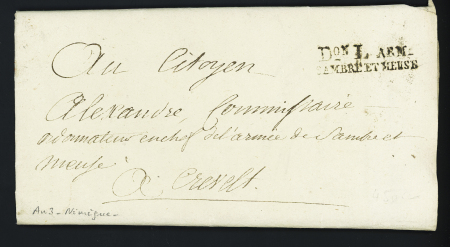 Au Citoyen
Dᵒⁿ L ARM.
SAMBRE ET MEUSE
Alexandre, Commissaire
ordonnateur en chef de l'armée de Sambre et
meuse
A Crevelt.
An 3 - Nimègue -